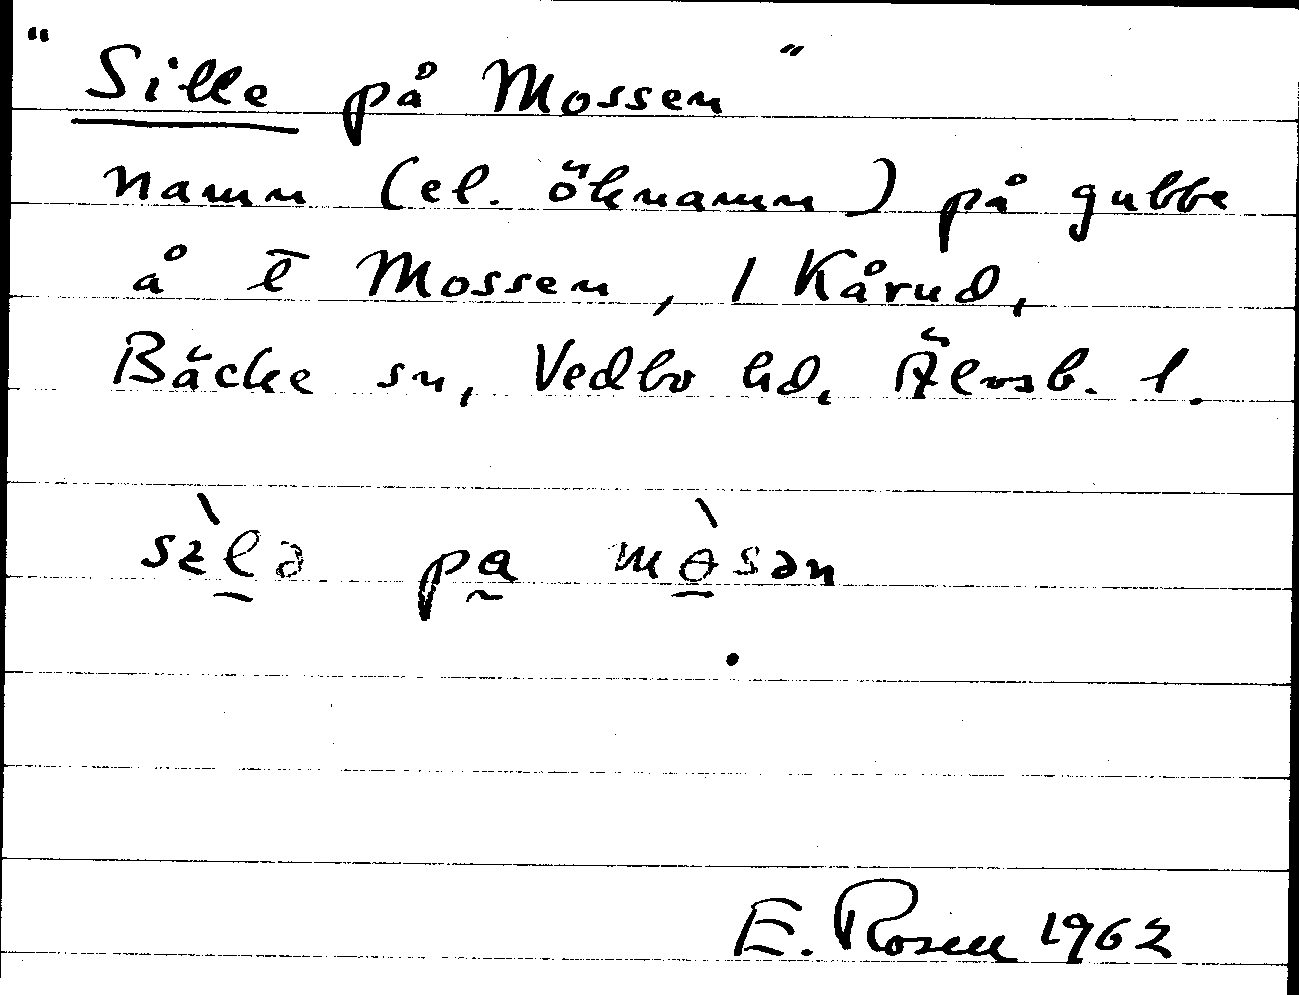 "Sille på Mossen"
namn (el. öknamn) på gubbe
å l̄ Mossen, / Kårud,
Bäcke sn, Vedbo hd, Älvsb. l.
sìlə pa mòsən
E. Rosén 1962